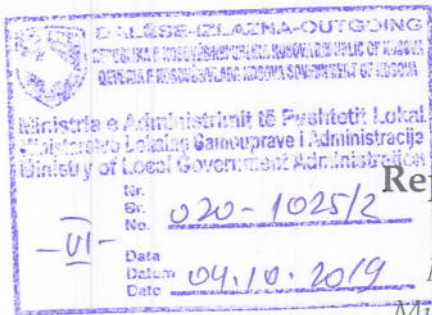 DALËSE-IZLAZNA-OUTGOING
REPUBLIKA E KOSOVËS REPUBLIKA KOSOVA REPUBLIC OF KOSOVA
QEVERIA E KOSOVËS VLADA KOSOVA GOVERNMENT OF KOSOVA
Ministria e Administrimit të Pushtetit Lokal
Ministarstvo Lokalne Samouprave i Administracije
Ministry of Local Government Administration
Nr.
Br.
No. 020-1025/2
Rep
-VI-
Data
Datum
Date 04.10.2019